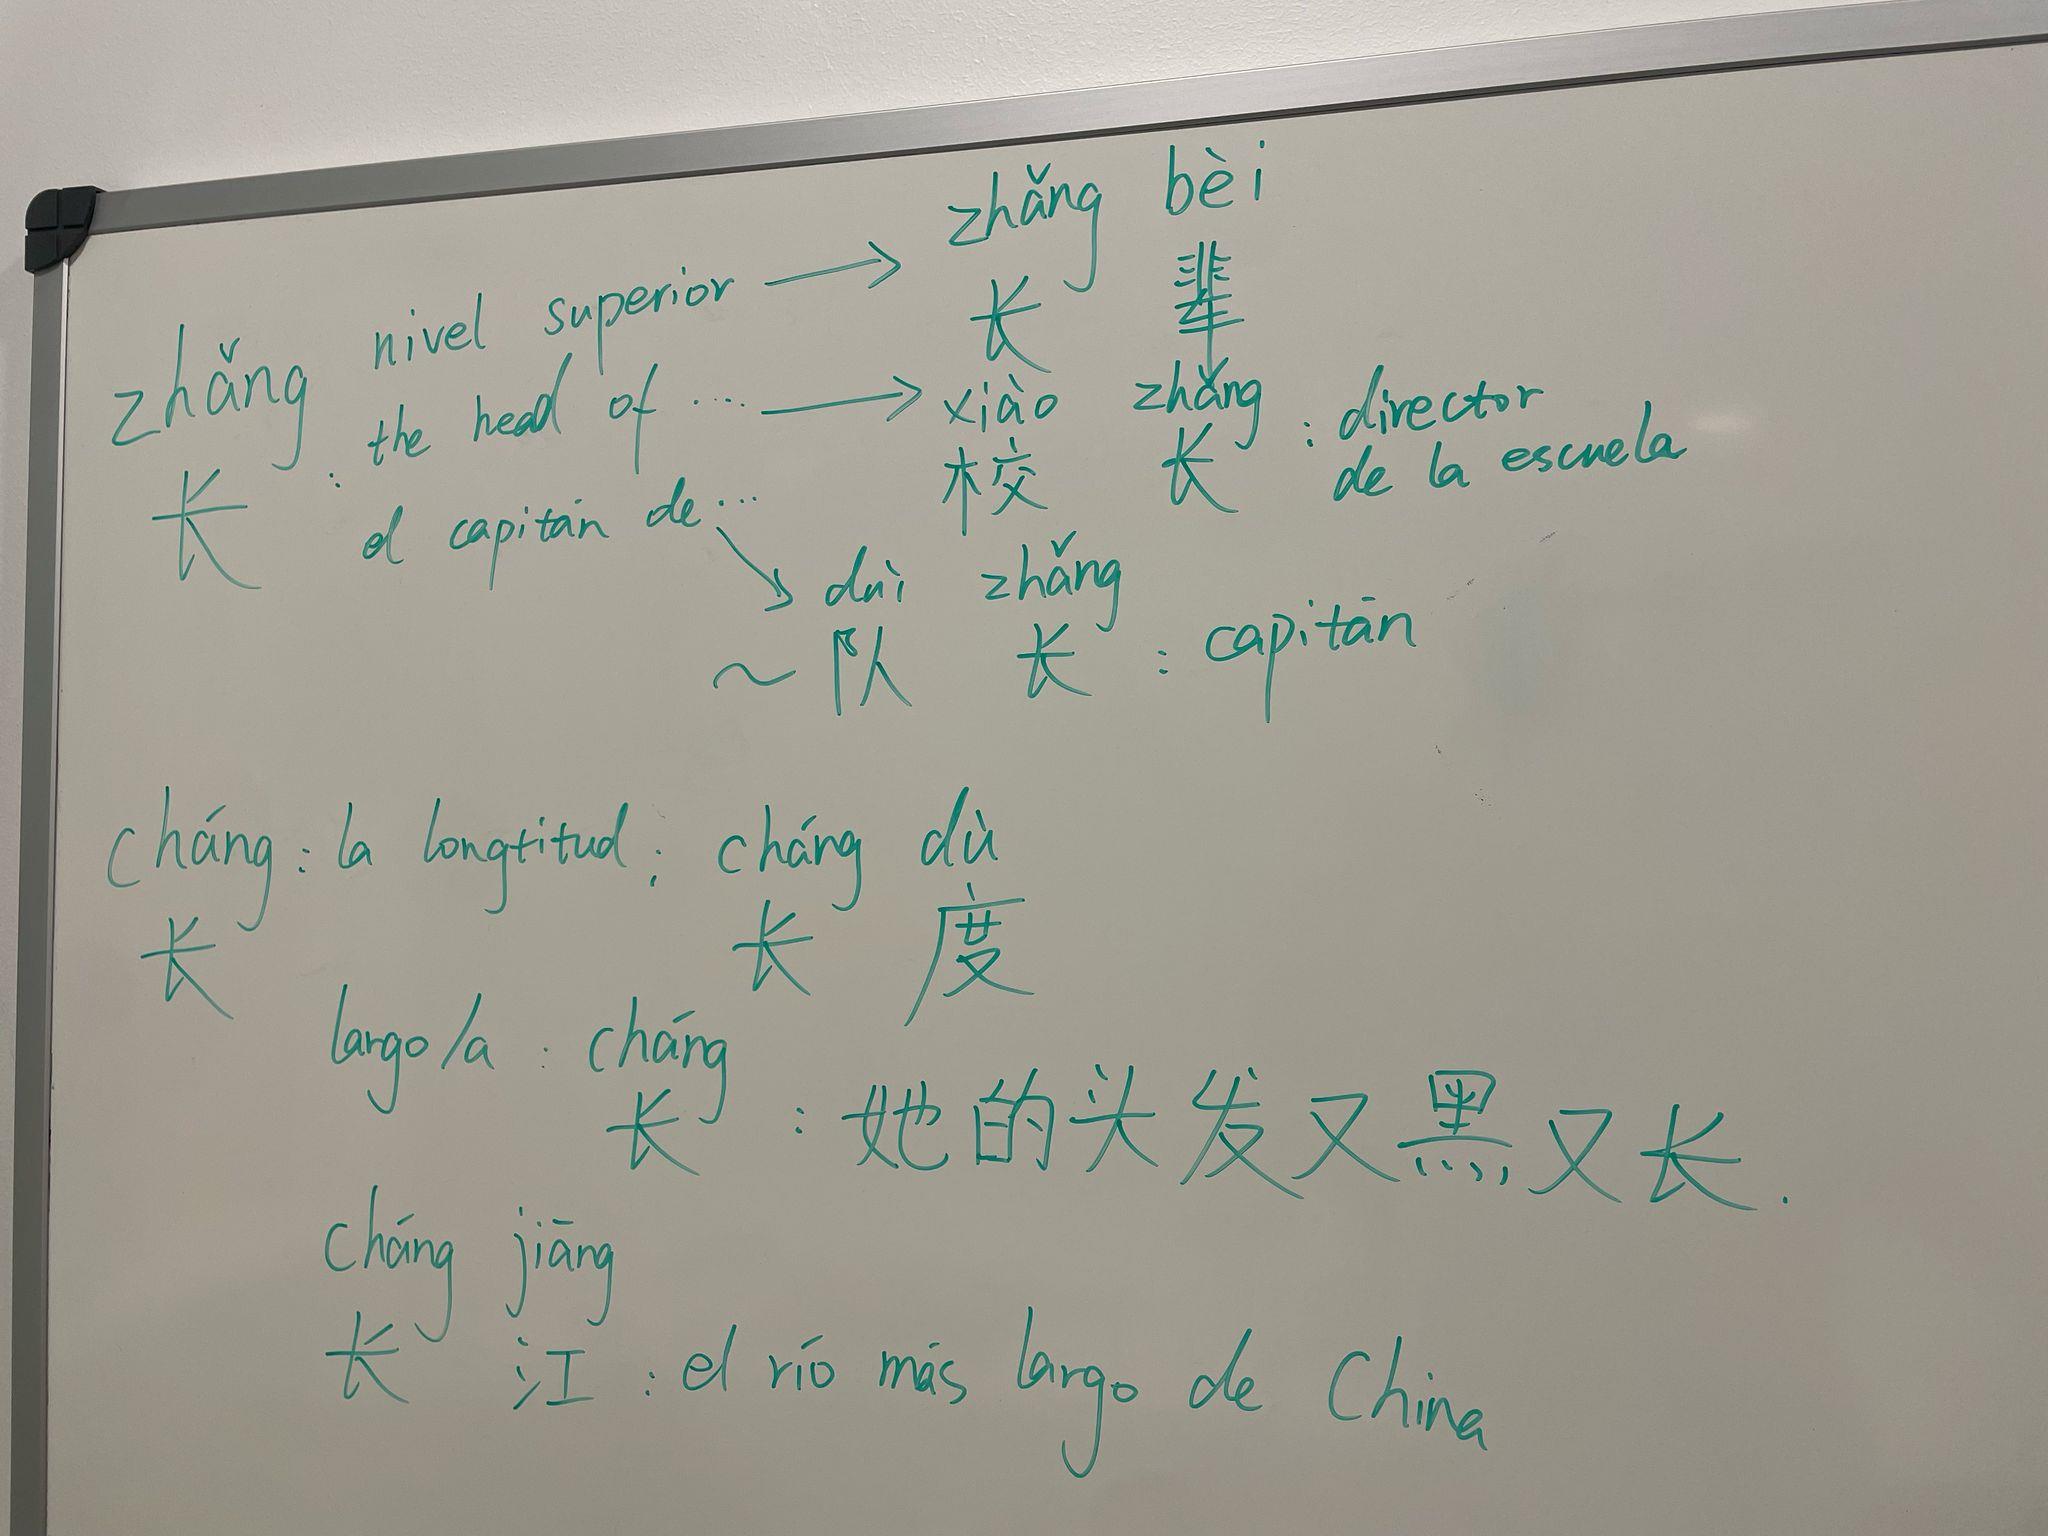 zhǎng bèi
nivel superior → 长 辈
zhǎng the head of .... → xiào zhǎng : director
长 : 校 长 de la escuela
el capitán de ... ↘ duì zhǎng
~ 队 长 : capitán
cháng : la longtitud ; cháng dù
长 长 度
largo/a : cháng
长 : 她的头发又黑又长.
cháng jiāng
长 江 : el río más largo de China